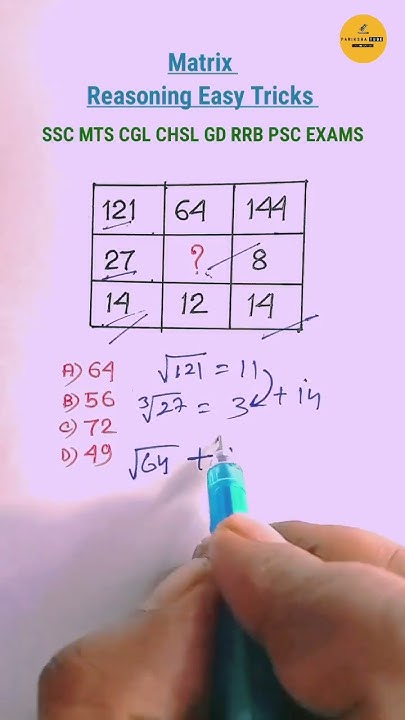 PARIKSHA TUBE
Matrix
Reasoning Easy Tricks
SSC MTS CGL CHSL GD RRB PSC EXAMS
121 64 144
27 ? 8
14 12 14
A) 64
B) 56
C) 72
D) 49
√121 = 11
∛27 = 3 + 14
√64 +